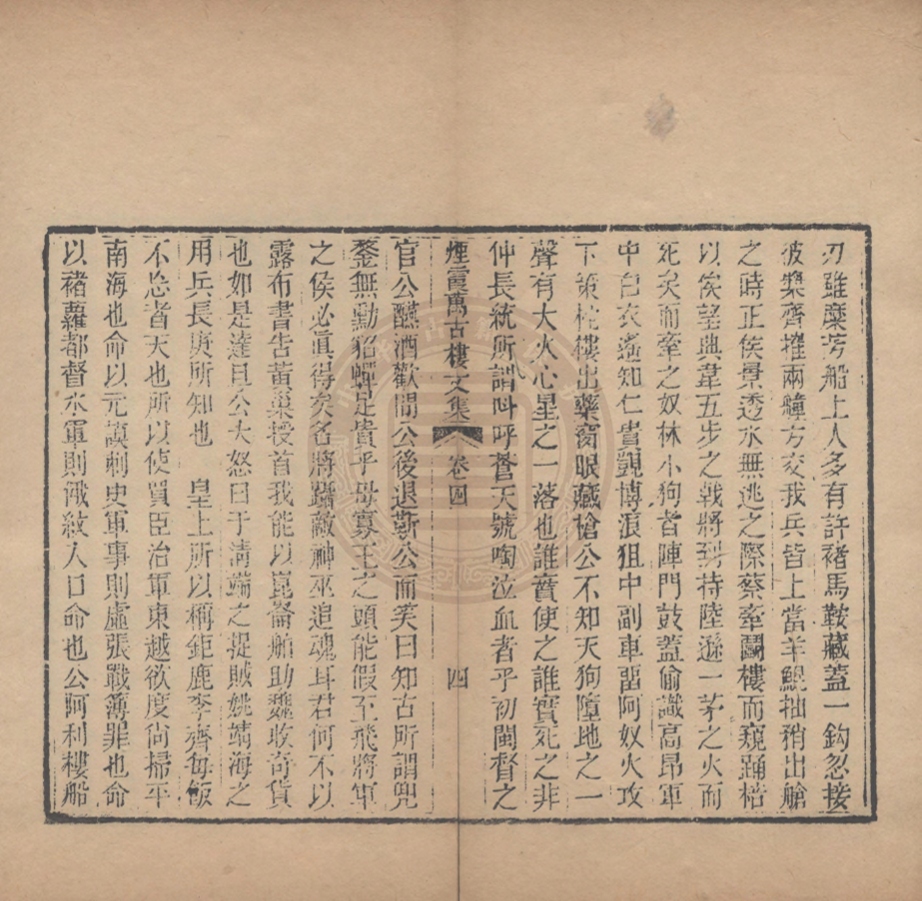 刃雖糜芳船上人多有許褚馬鞍藏蓋一鈎忽接
彼槳齊摧兩艟方交我兵皆上當羊鯤拙稍出艙
之時正侯景透水無逃之際蔡牽鬭樓而窺踊梏
以俟望典韋五步之戟將到持陸遜一茅之火而
死矣而牽之奴林小狗者陣門鼓蓋偷識高昂軍
中白衣遙知仁貴覬博浪狙中副車習阿奴火攻
下策柁樓出藥窗眼藏槍公不知天狗墮地之一
聲有大火心星之一落也誰實使之誰實死之非
仲長統所謂叫呼蒼天號啕泣血者乎初閩督之
煙霞萬古樓文集 卷四 四
官公醮酒歡閒公後退勒公而笑曰知古所謂兜
鍪無勳貂蟬足貴乎毋寡王之頭能假至飛將軍
之侯必眞得矣名將躡敵神巫追魂耳君何不以
露布書告黃巢授首我能以崑崙舶助魏收奇貨
也如是達旦公大怒曰于淸端之捉賊姚靖海之
用兵長庚所知也 皇上所以稱鉅鹿李齊每飯
不忘者天也所以使買臣治軍東越欲度尙掃平
南海也命以元謨刺史軍事則虛張戰簿罪也命
以褚蘿都督水軍則餓紋入口命也公阿利樓船